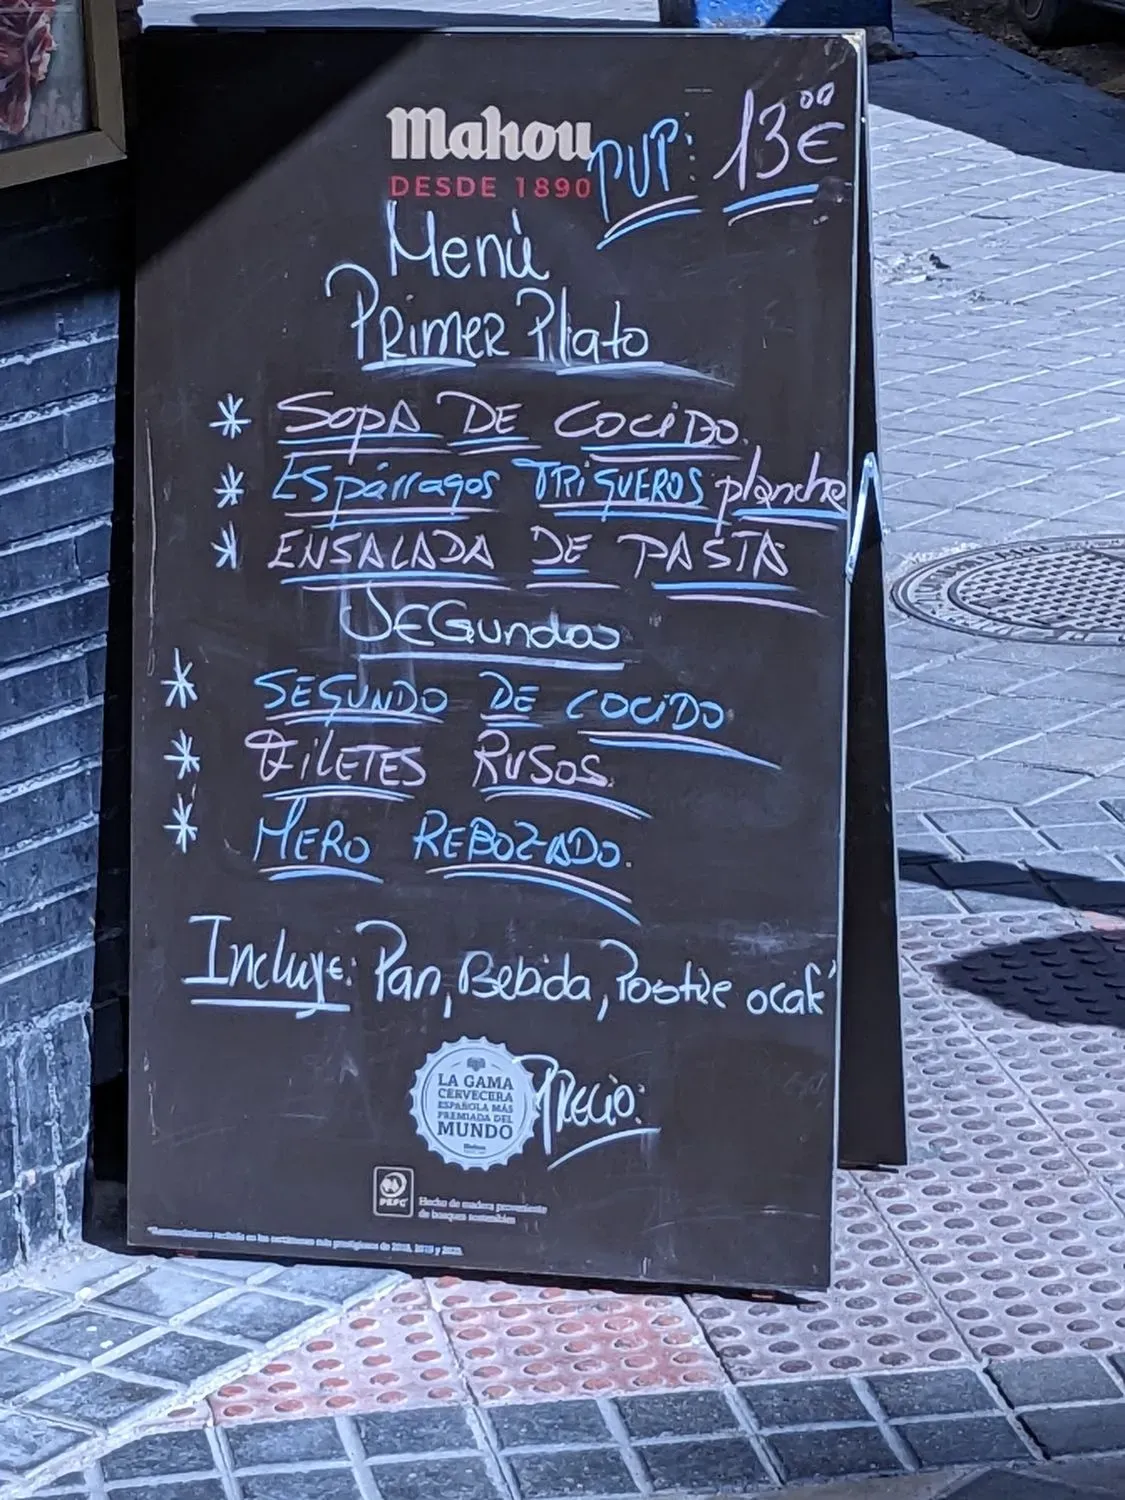 Mahou
DESDE 1890
PVP: 13,00 €
Menù
PRimeR Plato
* SOPA DE COCIDO.
* Espárragos TRIGUEROS plancha
* ENSALADA DE PASTA
SEGundos
* SEGUNDO DE COCIDO
* FILETES RUSOS.
* MERO REBOZADO.
Incluye: Pan, Bebida, Postre o café
LA GAMA
CERVECERA
ESPAÑOLA MÁS
PREMIADA DEL
MUNDO
Mahou
PRECIO:
PEFC
Hecho de madera proveniente
de bosques sostenibles